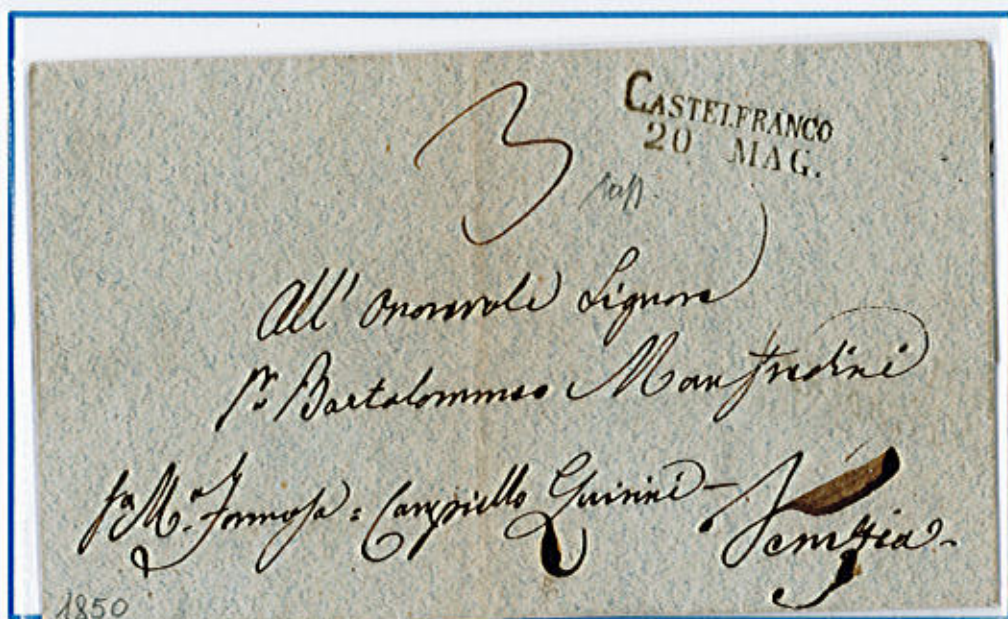 3
CASTELFRANCO
20 MAG.
All' Onorevole Signore
Sr. Bartolommeo Manfredini
Sa. Ma. Formosa = Campiello Quirini -
Venezia -
1850